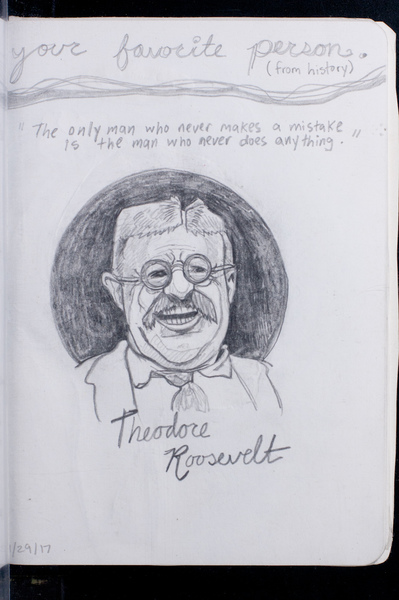 your favorite person.
(from history)
"The only man who never makes a mistake
is the man who never does anything."
Theodore
Roosevelt
/29/17